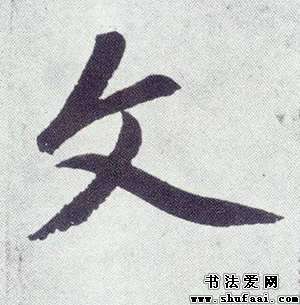 文
书法爱网
www.shufaai.com